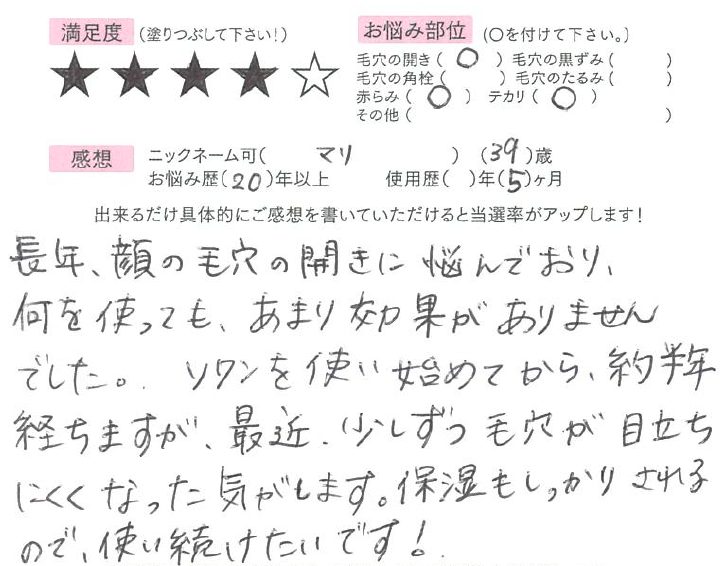 満足度 (塗りつぶして下さい!) お悩み部位 (○を付けて下さい。)
★★★★☆ 毛穴の開き( ○ ) 毛穴の黒ずみ( )
毛穴の角栓( ) 毛穴のたるみ( )
赤らみ( ○ ) テカリ( ○ )
その他( )
感想 ニックネーム可( マリ ) (39)歳
お悩み歴(20)年以上 使用歴( )年(5)ヶ月
出来るだけ具体的にご感想を書いていただけると当選率がアップします!
長年、顔の毛穴の開きに悩んでおり、
何を使っても、あまり効果がありません
でした。. ソワンを使い始めてから、約半年
経ちますが、最近、少しずつ毛穴が目立ち
にくくなった気がします。保湿もしっかりされる
ので、使い続けたいです!